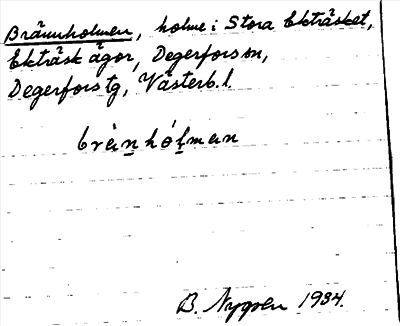 Brännholmen, holme i Stora Ekträsket,
Ekträsk ägor, Degerfors sn,
Degerfors tg, Västerb. l.
brànhólman
B. Nygren 1934.